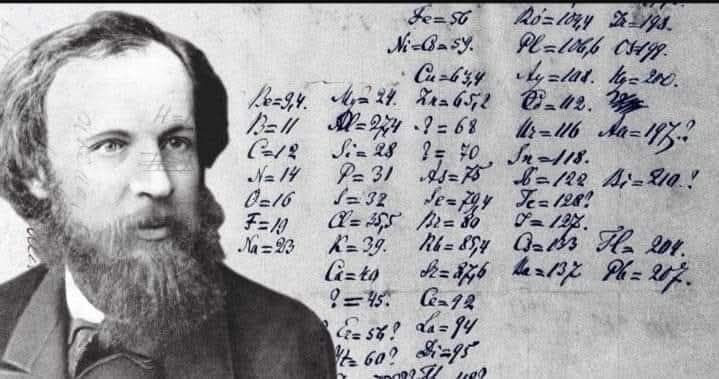 Fe=56 Ro=104,4 Ir=198.
Ni=Co=59. Pl=106,6 Os=199.
Cu=63,4 Ag=108. Hg=200.
Be=9,4. Mg=24. Zn=65,2 Cd=112.
B=11 Al=27,4 ?=68 Ur=116 Au=197?
C=12 Si=28 ?=70 Sn=118.
N=14 P=31 As=75 Sb=122 Bi=210?
O=16 S=32 Se=79,4 Te=128?
F=19 Cl=35,5 Br=80 J=127.
Na=23 K=39. Rb=85,4 Cs=133 Tl=204.
Ca=40 Sr=87,6 Ba=137 Pb=207.
?=45. Ce=92
Er=56? La=94
Yt=60? Di=95